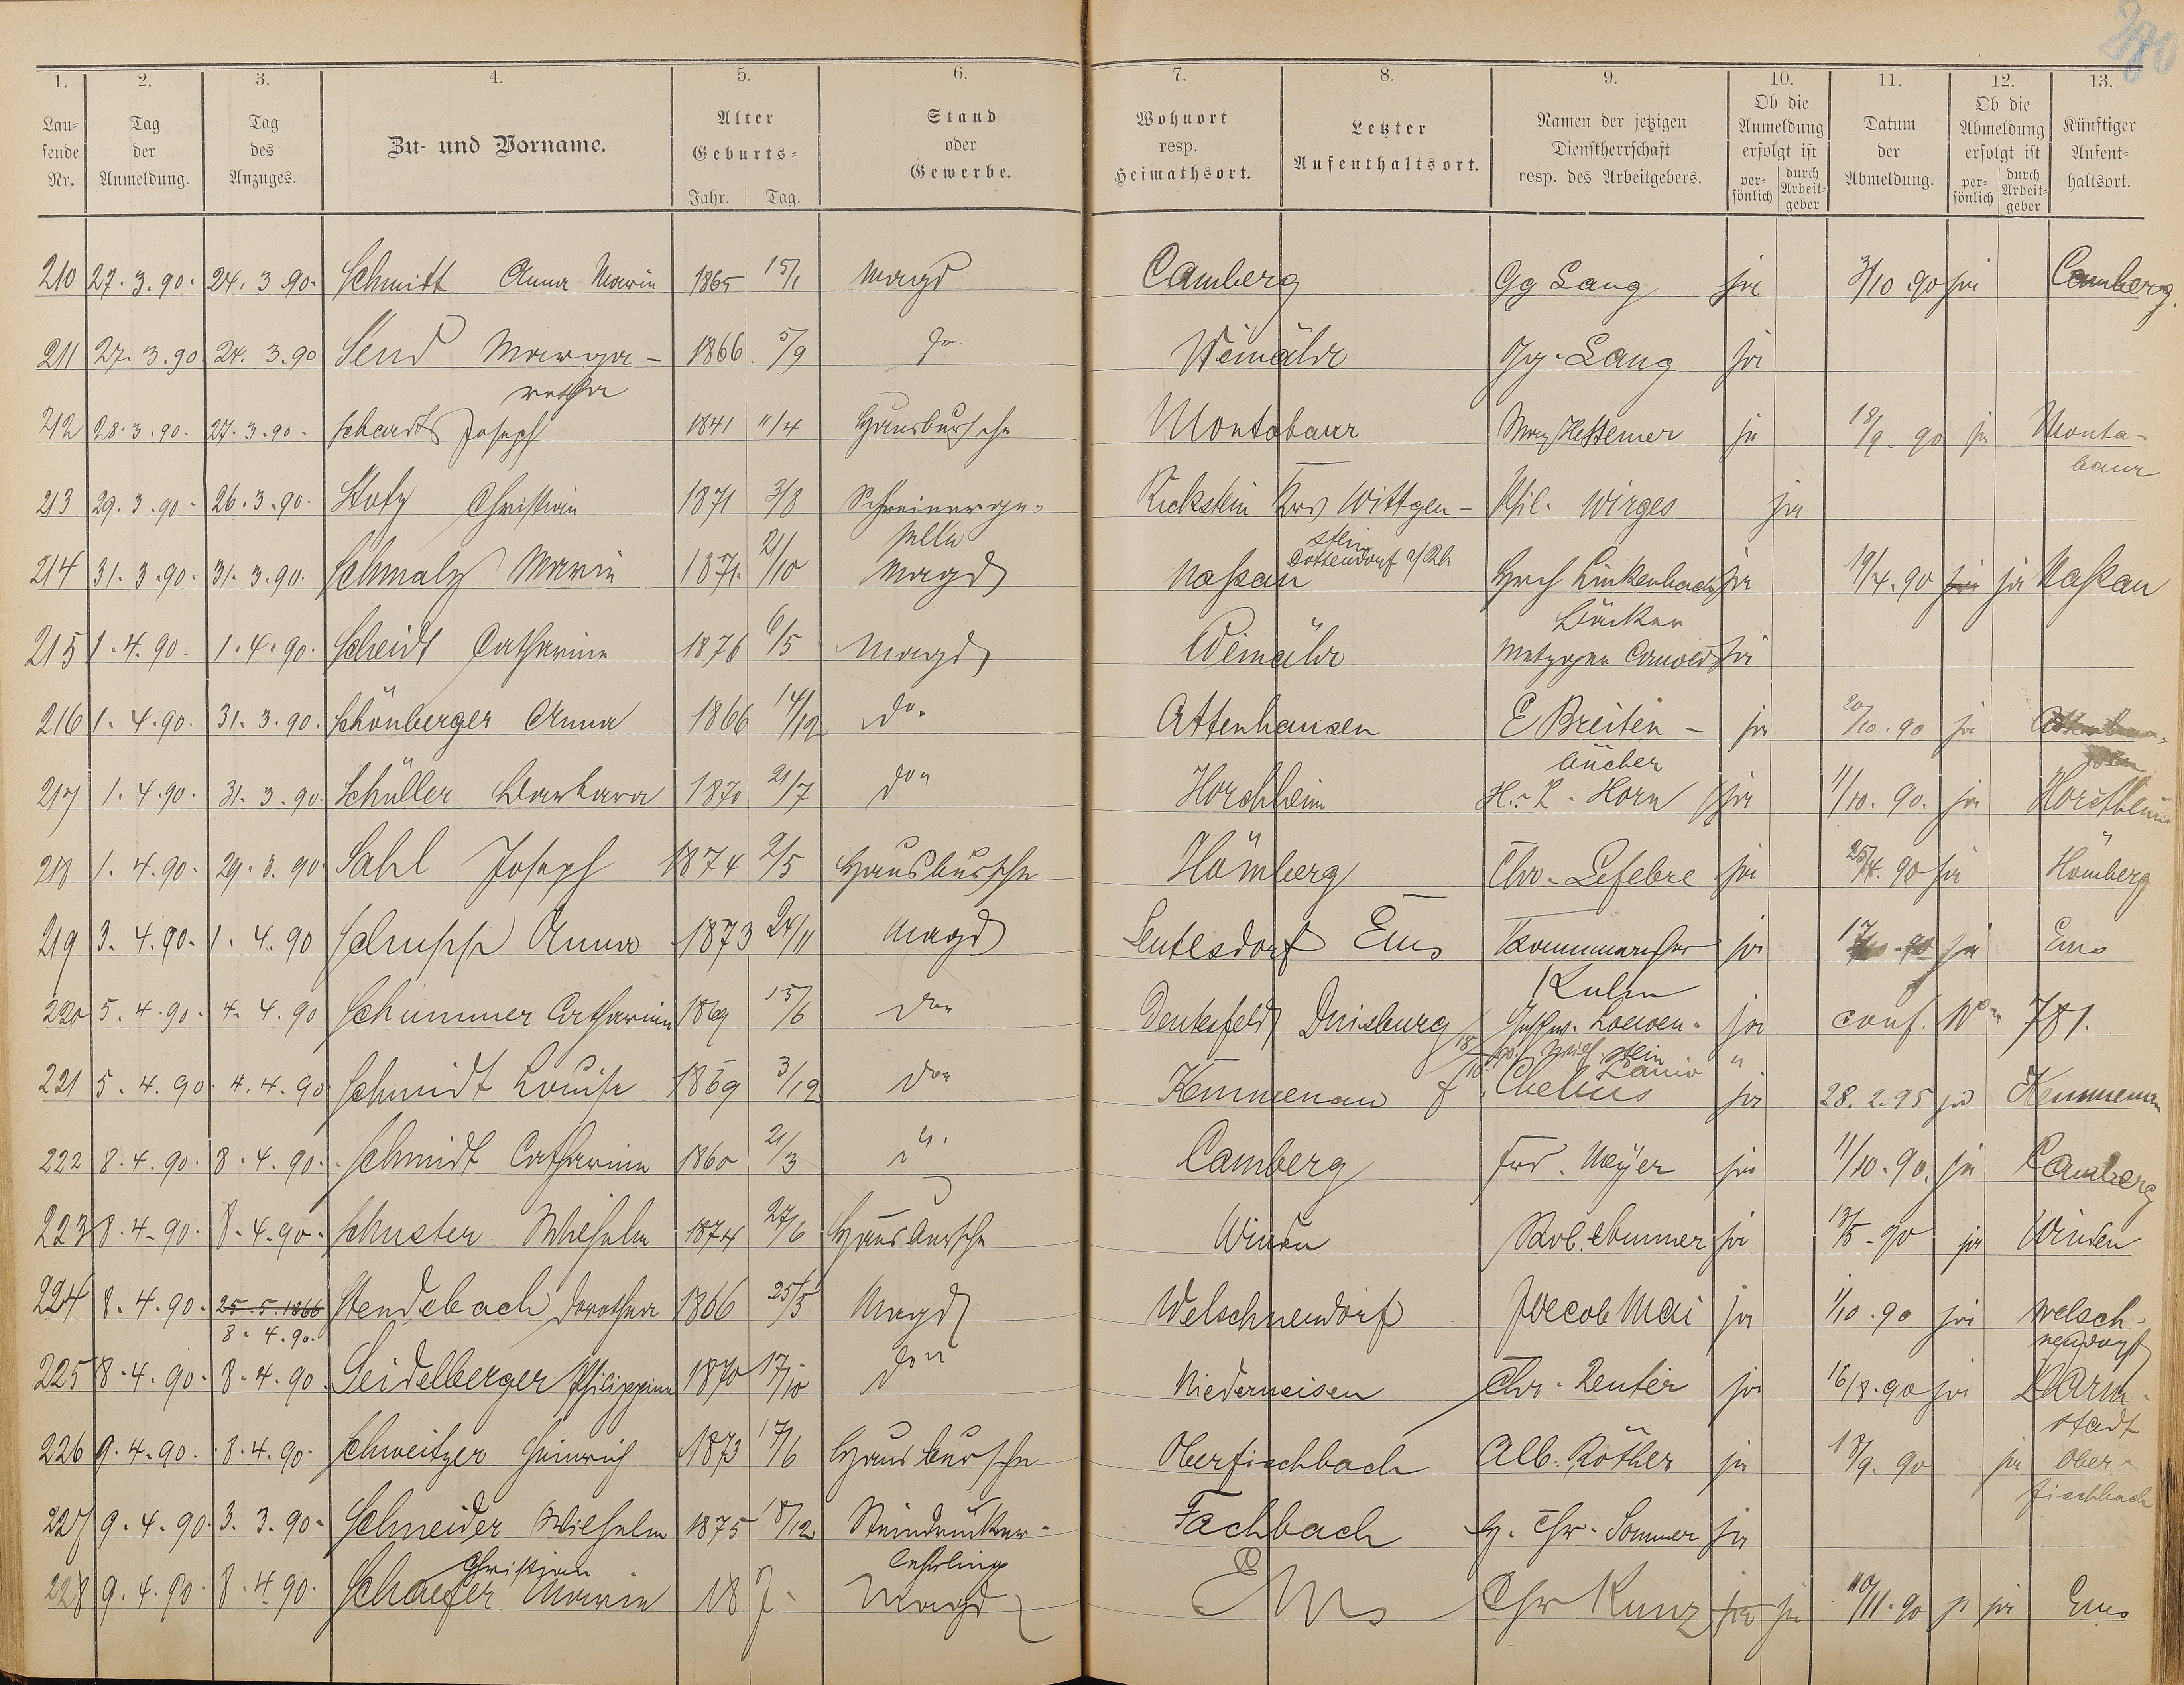 270
1. 2. 3. 4. 5. 6. 7. 8. 9. 10. 11. 12. 13.
Lau-
fende
Nr.
Tag
der
Anmeldung.
Tag
des
Anzuges.
Zu- und Vorname.
Alter
Geburts-
Jahr. Tag.
Stand
oder
Gewerbe.
Wohnort
resp.
Heimathsort.
Letzter
Aufenthaltsort.
Namen der jetzigen
Dienstherrschaft
resp. des Arbeitgebers.
Ob die
Anmeldung
erfolgt ist
per-
sönlich
durch
Arbeit-
geber
Datum
der
Abmeldung.
Ob die
Abmeldung
erfolgt ist
per-
sönlich
durch
Arbeit-
geber
Künftiger
Aufent-
haltsort.
210 27.3.90. 24.3.90. Schmitt Anna Maria 1865 15/1 Magd Camberg Gg Lang ja 3/10 90 ja Camberg.
211 27.3.90. 24.3.90 Send Marga- 1866 5/9 do Weinähr Gg. Lang ja
retha
212 28.3.90. 27.3.90. Schardt Joseph 1841 11/4 Hausbursche Montabaur Hessemer ja 18/9. 90 ja Monta-
baur
213 29.3.90. 26.3.90. Stotz Christian 1871 3/8 Schreinerge- Rückstein Krs Wittgen- Phil. Wirges ja
selle stein
214 31.3.90. 31.3.90. Schmalz Maria 1871. 21/10 Magd Nassau Dottendorf a/Rh Hrch Linkenbach ja 19/4. 90 ja ja Nassau
Bäcker
215 1.4.90. 1.4.90. Scheidt Catharina 1876 6/5 Magd Weinähr Metzger ja
216 1.4.90. 31.3.90. Schönberger Anna 1866 14/12 do. Attenhausen E Breiten- ja 20/10.90 ja Attenhau-
bücher sen
217 1.4.90. 31.3.90. Schüller Barbara 1870 21/7 do" Horchheim H. L. Horn ja 11/10. 90. ja Horchheim
218 1.4.90. 29.3.90 Sahl Joseph 1874 2/5 Hausbursche Hömberg Chr. Lefebre ja 25/4. 90 ja Hömberg
219 3.4.90. 1.4.90 Schupp Anna 1873 24/11 Magd Leutesdorf Ems ja ja Ems
220 5.4.90. 4.4.90 Schummer Catharina 1869 15/6 do" Denterfeld Duisburg Loewen- ja conf. No 781.
stein
221 5.4.90. 4.4.90 Schmidt Louise 1869 3/12 do" Kemmenau Chelius ja 28.2.95 ja Kemmenau
222 8.4.90. 8.4.90. Schmidt Catharina 1860 21/3 Camberg Frd. Meÿer ja 11/10.90. ja Camberg
223 8.4.90. 8.4.90. Schuster Wilhelm 1874 27/6 Hausbursche Winden Rob. ja 13/5. 90 ja Winden
224 8.4.90. 25.5.1866 Stendebach Dorothea 1866 25/5 Magd Welschneudorf Jacob Mai ja 1/10.90 ja Welsch-
8.4.90. neudorf
225 8.4.90. 8.4.90. Seidelberger Philippine 1870 17/10 do" Niederneisen Chr. Reuter ja 16/8.90 ja Darm-
stadt
226 9.4.90. 8.4.90. Schweitzer Heinrich 1873 17/6 Hausbursche Oberfischbach Alb. Röther ja 18/9. 90 ja Ober-
fischbach
227 9.4.90. 3.3.90. Schneider Wilhelm 1875 18/12 Steindrucker- Fachbach H. Chr. Sommer ja
Christian lehrling
228 9.4.90. 8.4.90. Schaefer Maria 187 Magd Ems Chr Kunz ja ja 10/11.90 ja Ems